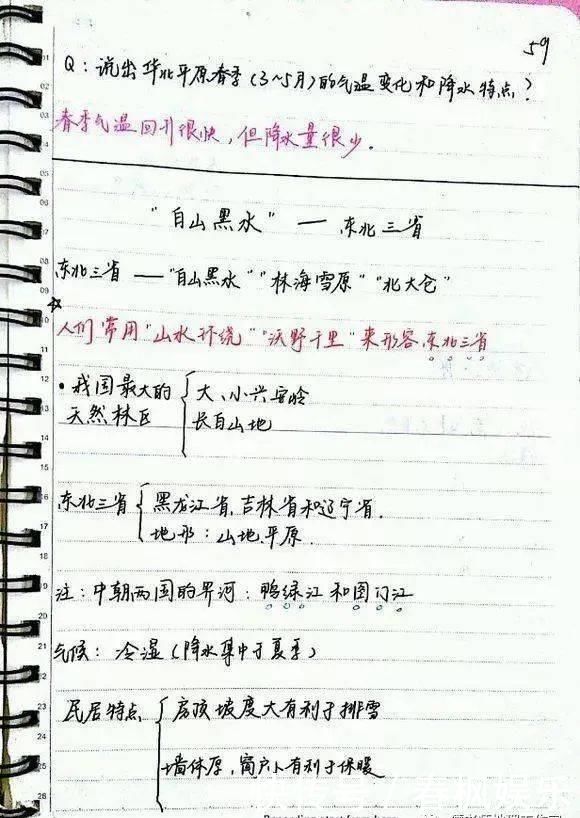 59
Q：说出华北平原春季(3~5月)的气温变化和降水特点?
春季气温回升很快，但降水量很少．
"白山黑水" — 东北三省
东北三省 — "白山黑水" "林海雪原" "北大仓"
☆
人们常用"山水环绕" "沃野千里"来形容东北三省
·我国最大的 { 大、小兴安岭
天然林区 长白山地
东北三省 { 黑龙江省,吉林省和辽宁省.
地形：山地.平原．
注：中朝两国的界河：鸭绿江和图们江
气候：冷湿(降水集中于夏季)
民居特点 { 房顶坡度大有利于排雪
墙体厚,窗户小有利于保暖